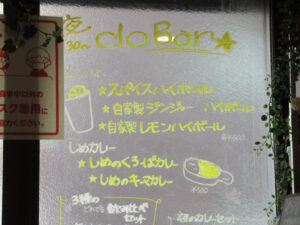 30~ do Bar★
★スパイスハイボール
★自家製ジンジャーハイボール
★自家製レモンハイボール
各¥500
しめカレー
★しめのくろぱカレー
★しめのキーマカレー
¥500
3種の
飲み比べ
セット
カレーセット
食事中以外の
マスク着用に
協力ください。